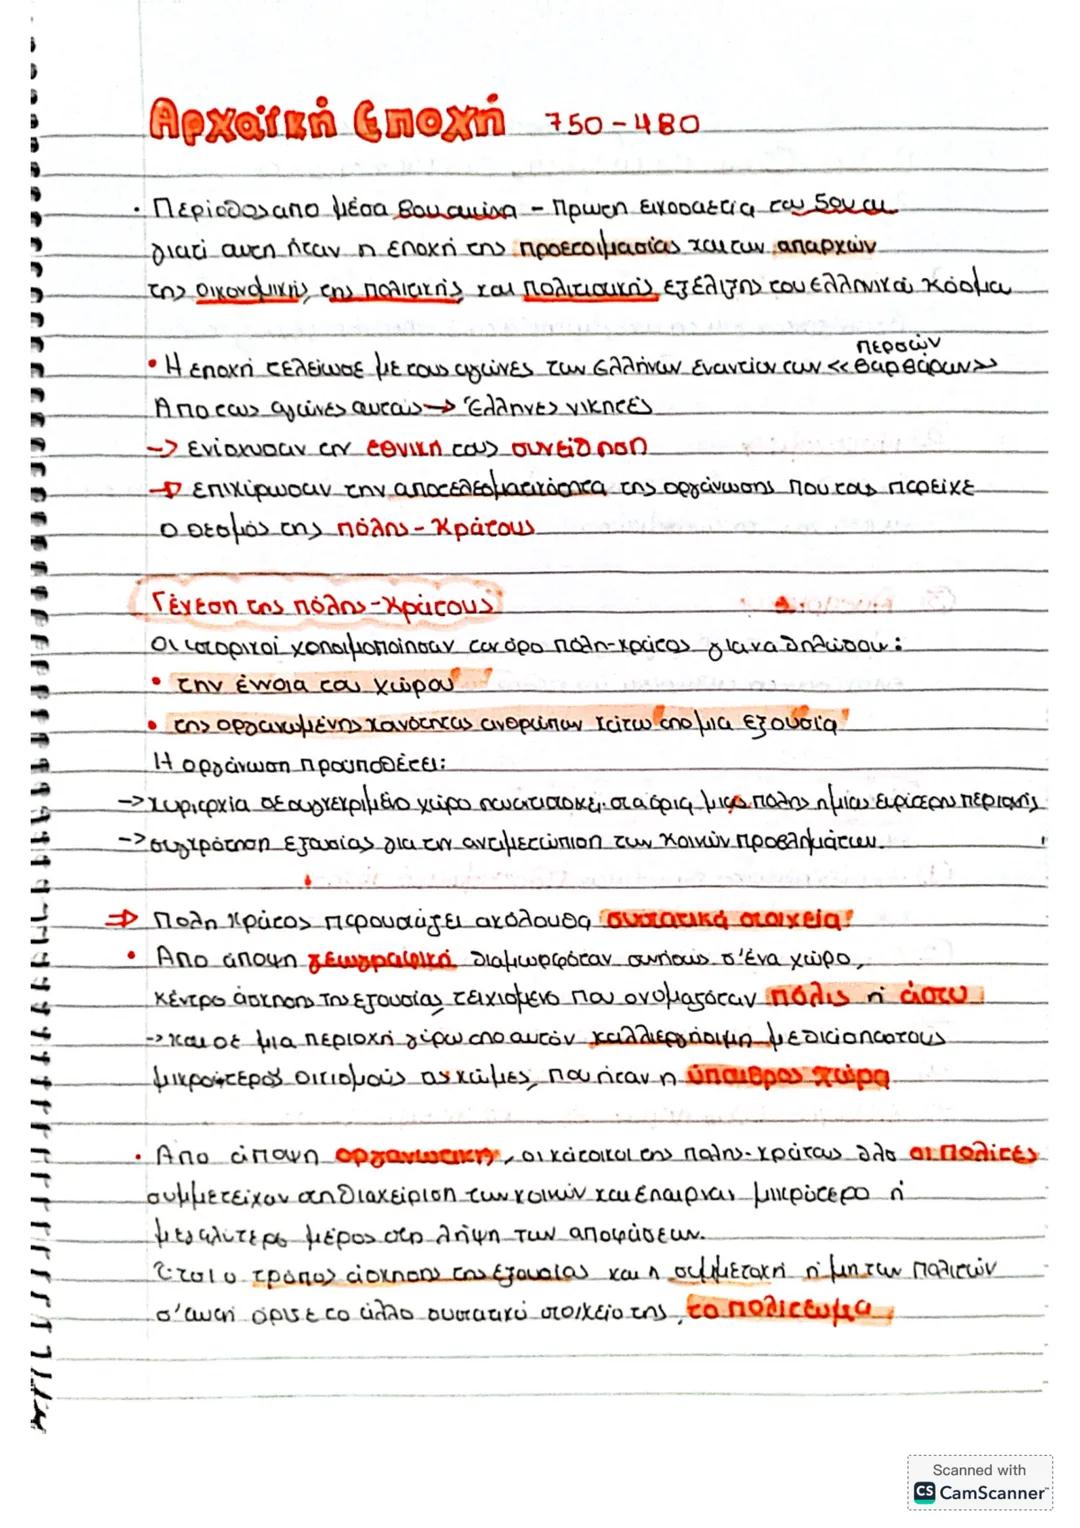 Αρχαϊκή Εποχή 750-480
· Περίοδος απο μέσα 8ου αιώνα - Πρωτη εικοσαετία του 5ου αι
γιατί αυτη ήταν η εποχή της προετοιμασίας και των απαρχών
της οικονομικής, της πολιτικής και πολιτιστικής εξέλιξης του Ελληνικού Κόσμου
Περσών
• Η εποχή τελείωσε με τους αγώνες των Ελλήνων Εναντίον των «βαρβάρων»
Απο τους αγώνες αυτούς → Έλληνες νικητές
→ Ενίσχυσαν την εθνική τους συνείδηση
→ επικύρωσαν την αποτελεσματικότητα της οργάνωσης που τους παρείχε
ο θεσμός της πόλης - Κράτους
Γένεση της πόλης-Κράτους
Οι ιστορικοί χρησιμοποίησαν τον όρο πόλη-κράτος για να δηλώσουν:
• την έννοια του χώρου
• της οργανωμένης κοινότητας ανθρώπων κάτω απο μια εξουσία
Η οργάνωση προυποθέτει:
→ κυριαρχία σε συγκεκριμένο χώρο που στα όρια μιας πόλης ή μιας ευρύτερης περιοχής
→ συγκρότηση εξουσίας για την αντιμετώπιση των κοινών προβλημάτων.
⇒ Πολη Κράτος παρουσιάζει ακόλουθα συστατικά στοιχεία!
• Απο άποψη γεωγραφική διαμορφώταν συνήθως σ'ένα χώρο,
κέντρο άσκησης της εξουσίας, τειχισμένο που ονομαζόταν πόλις ή άστυ
→ και σε μια περιοχή γύρω απο αυτόν καλλιεργήσιμη με διάσπαρτους
μικρότερους οικισμούς ως κώμες, που ήταν η ύπαιθρος χώρα
· Απο άποψη οργανωτική, οι κάτοικοι της πολης-κράτους δλδ οι πολίτες
συμμετείχαν στη διαχείριση των κοινών και έπαιρναν μικρότερο ή
μεγαλύτερο μέρος στη λήψη των αποφάσεων.
Έτσι ο τρόπος άσκησης της εξουσίας και η συμμετοχή ή μη των πολιτών
σ'αυτή όρισε το άλλο συστατικό στοιχείο της, το πολίτευμα
Scanned with
CS CamScanner